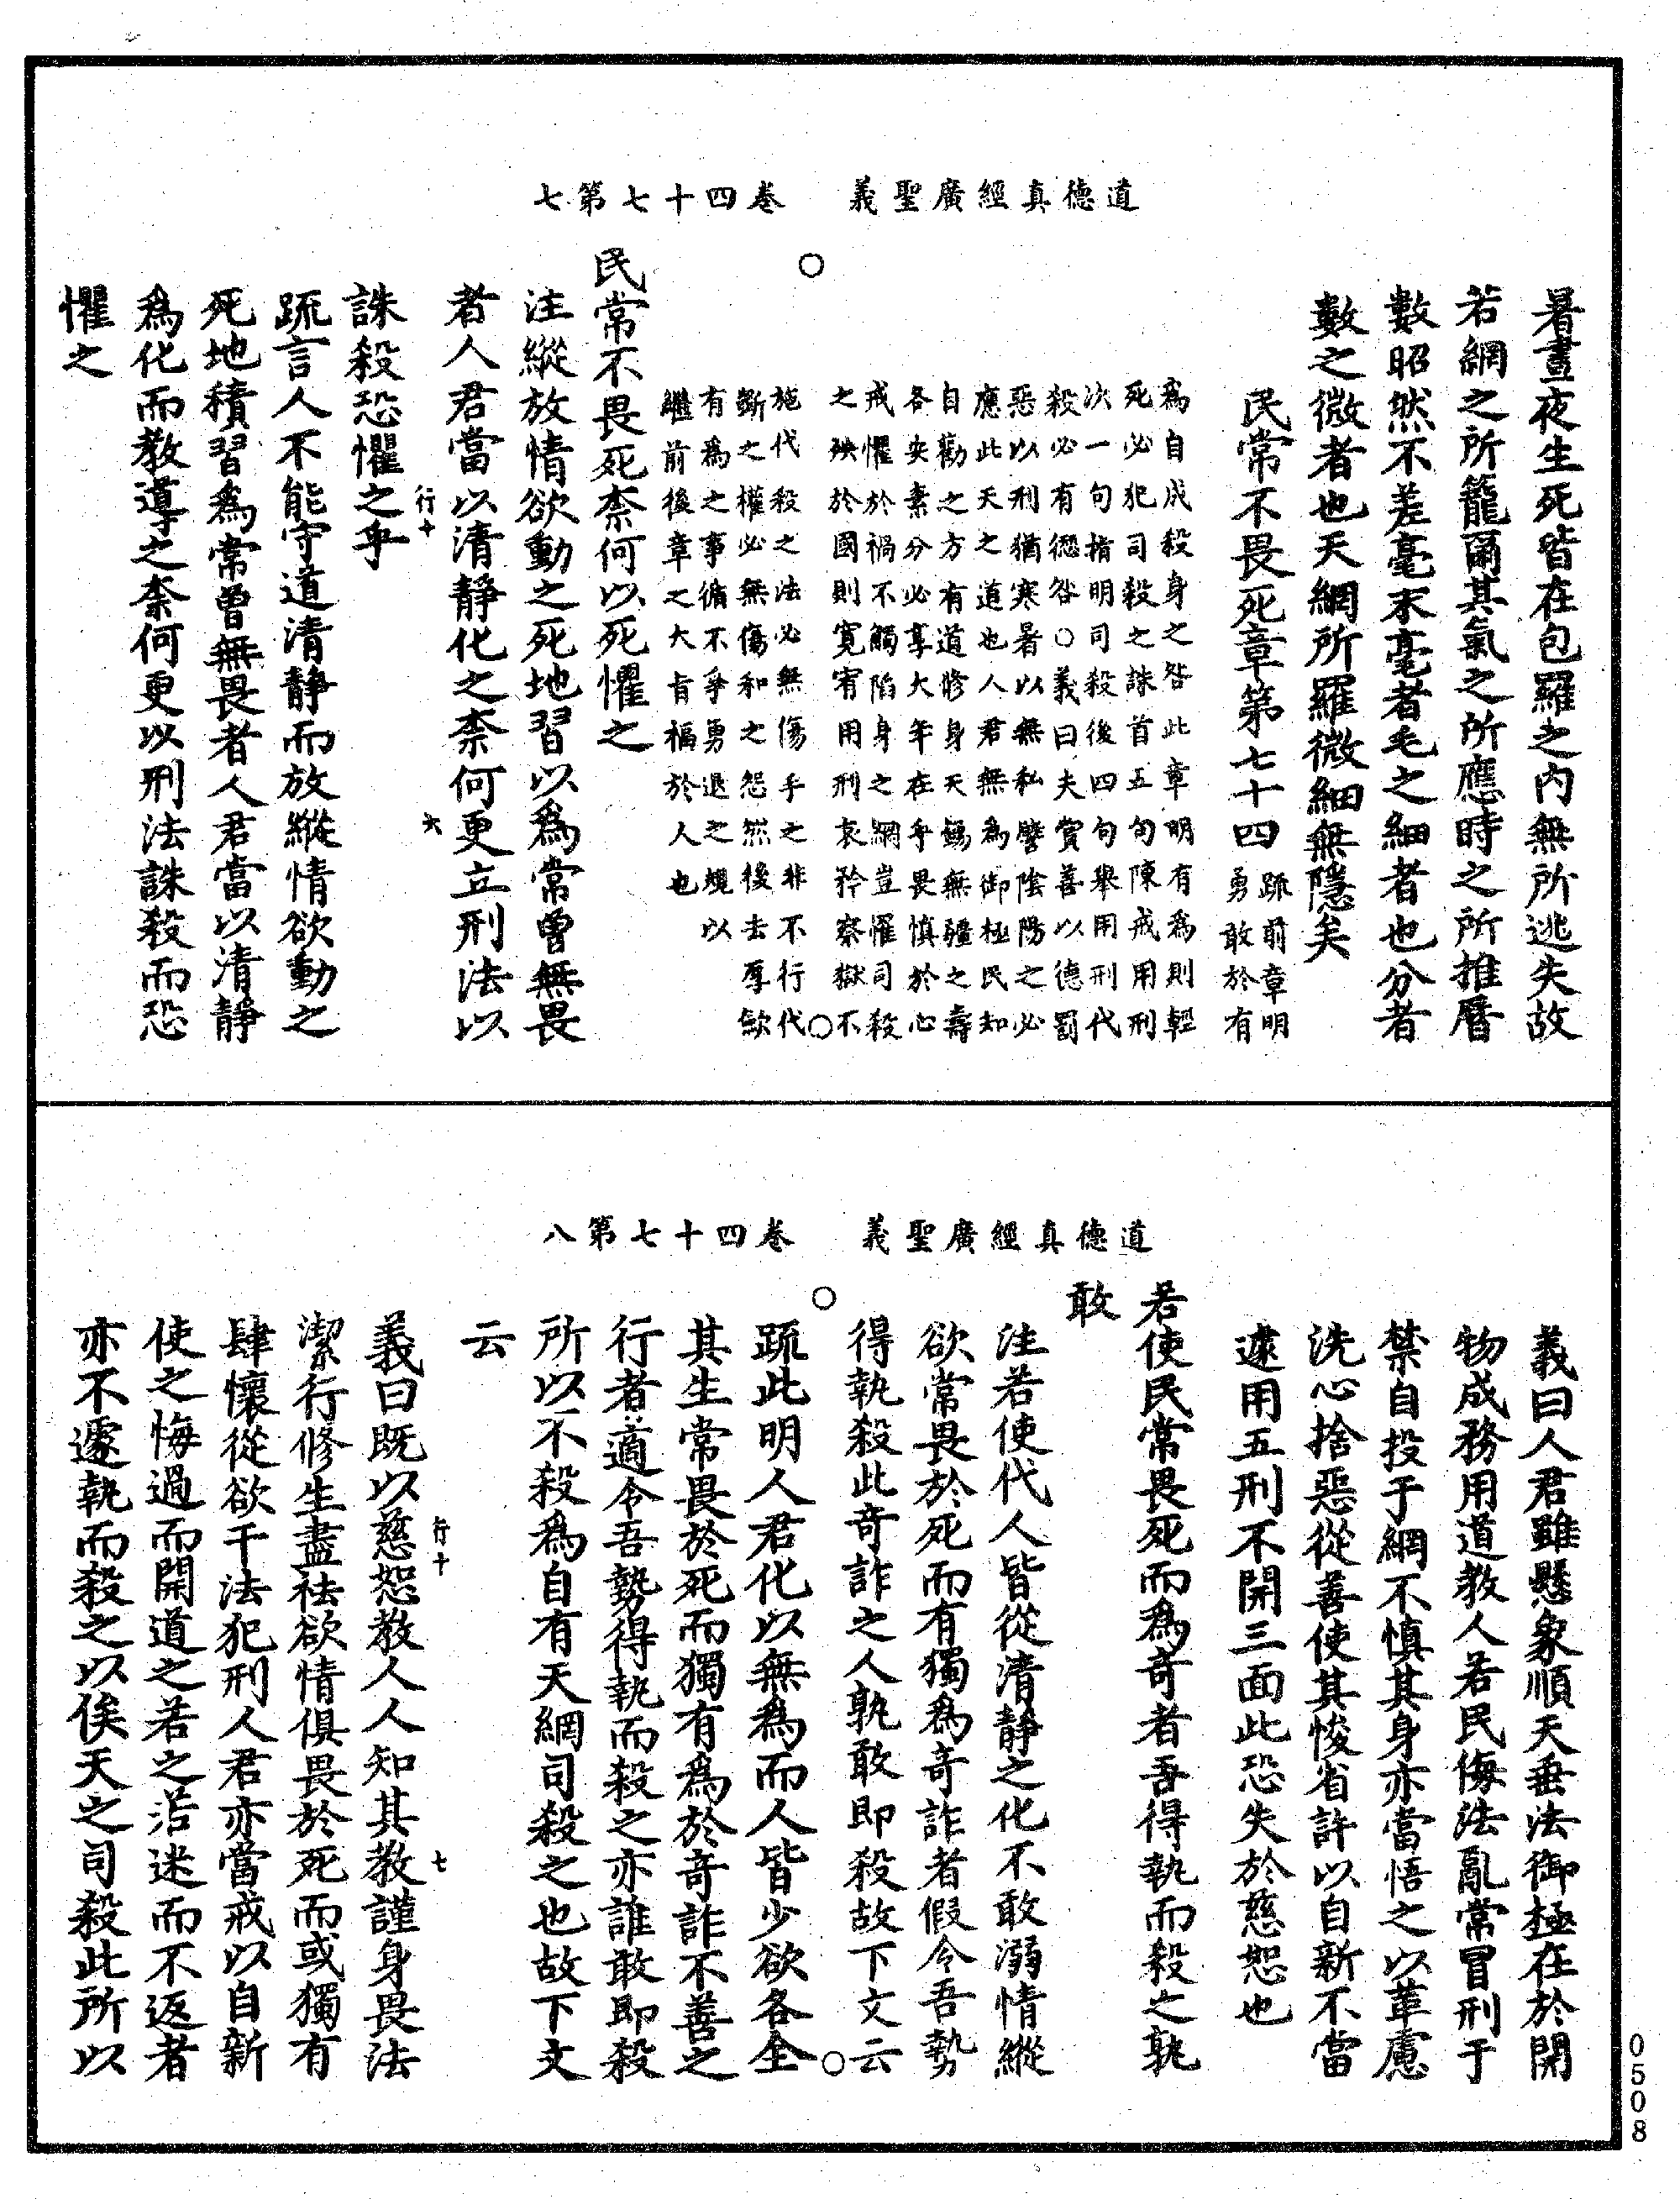 道德真經廣聖義　卷四十七第七
暑晝夜生死皆在包羅之内無所逃失故
若網之所籠爾其氣之所應時之所推曆
數昭然不差毫末毫者毛之細者也分者
數之微者也天網所羅微細無隱矣
民常不畏死章第七十四
疏前章明
勇敢於有
為自成殺身之咎此章明有為則輕
死必犯司殺之誅首五句陳戒用刑
次一句指明司殺後四句舉用刑代
殺必有愆咎○義曰夫賞善以德罰
惡以刑猶寒暑以無私譬陰陽之必
應此天之道也人君無為御極民知
自勸之方有道修身天錫無疆之壽
各安素分必享大年在乎畏慎於心
戒懼於禍不觸陷身之網豈懼司殺
之殃於國則寬宥用刑哀矜察獄不
施代殺之法必無傷手之非不行代
斲之權必無傷和之怨然後去厚斂
有為之事循不爭勇退之規以
繼前後章之大旨福於人也
民常不畏死柰何以死懼之
注縱放情欲動之死地習以為常曾無畏
者人君當以清靜化之柰何更立刑法以
行十　六
誅殺恐懼之乎
疏言人不能守道清靜而放縱情欲動之
死地積習為常曾無畏者人君當以清靜
為化而教導之柰何更以刑法誅殺而恐
懼之
道德真經廣聖義　卷四十七第八
義曰人君雖懸象順天垂法御極在於開
物成務用道教人若民侮法亂常冒刑于
禁自投于網不慎其身亦當悟之以革慮
洗心捨惡從善使其悛省許以自新不當
遽用五刑不開三面此恐失於慈恕也
若使民常畏死而為奇者吾得執而殺之孰
敢
注若使代人皆從清靜之化不敢溺情縱
欲常畏於死而有獨為奇詐者假令吾勢
得執殺此奇詐之人孰敢即殺故下文云
疏此明人君化以無為而人皆少欲各全
其生常畏於死而獨有為於奇詐不善之
行者適令吾勢得執而殺之亦誰敢即殺
所以不殺為自有天網司殺之也故下文
云
行十　七
義曰既以慈恕教人人知其教謹身畏法
潔行修生盡袪欲情俱畏於死而或獨有
肆懷從欲干法犯刑人君亦當戒以自新
使之悔過而開道之若之滔迷而不返者
亦不遽執而殺之以俟天之司殺此所以
0508